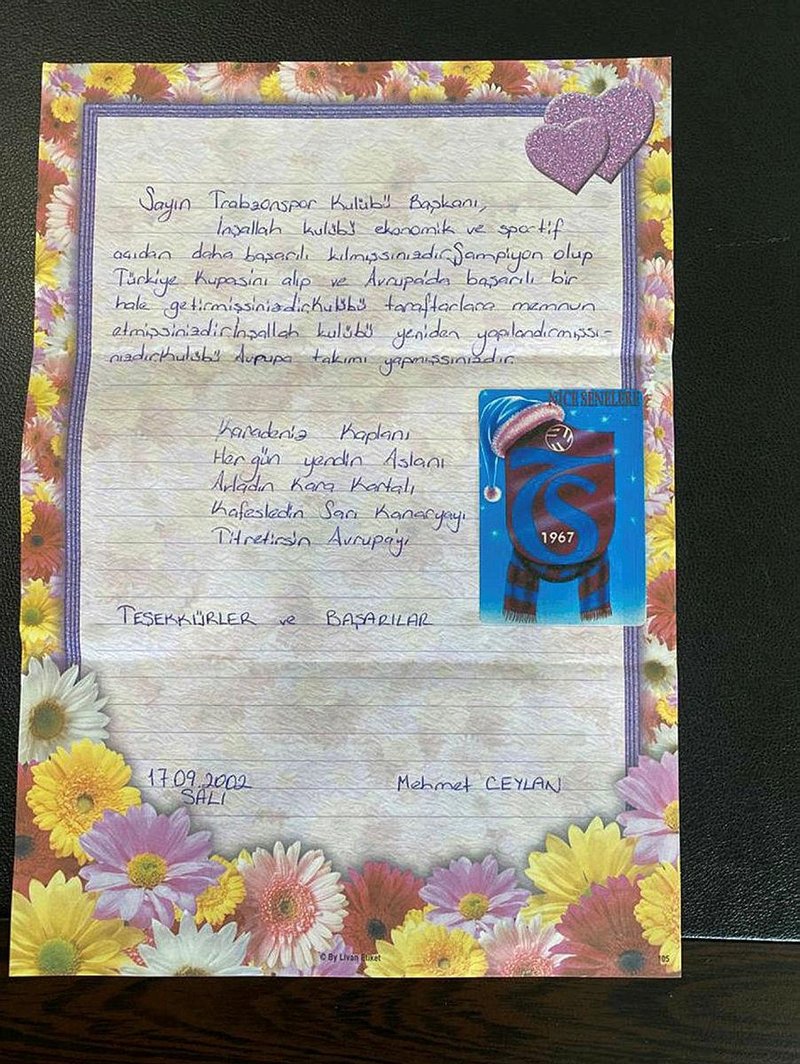 Sayın Trabzonspor Kulübü Başkanı,
İnşallah kulübü ekonomik ve sportif
açıdan daha başarılı kılmışsınızdır.Şampiyon olup
Türkiye Kupasını alıp ve Avrupa'da başarılı bir
hale getirmişsinizdir.Kulübü taraftarlara memnun
etmişsinizdir.İnşallah kulübü yeniden yapılandırmışsı-
nızdır.Kulübü Avrupa takımı yapmışsınızdır.
Karadeniz Kaplanı
Her gün yendin Aslanı
Avladın Kara Kartalı
Kafesledin Sarı Kanaryayı
Titretirsin Avrupayı
NİCE SENELERE
TS
1967
TEŞEKKÜRLER ve BAŞARILAR
17.09.2002
SALI
Mehmet CEYLAN
© By Livan Etiket
105